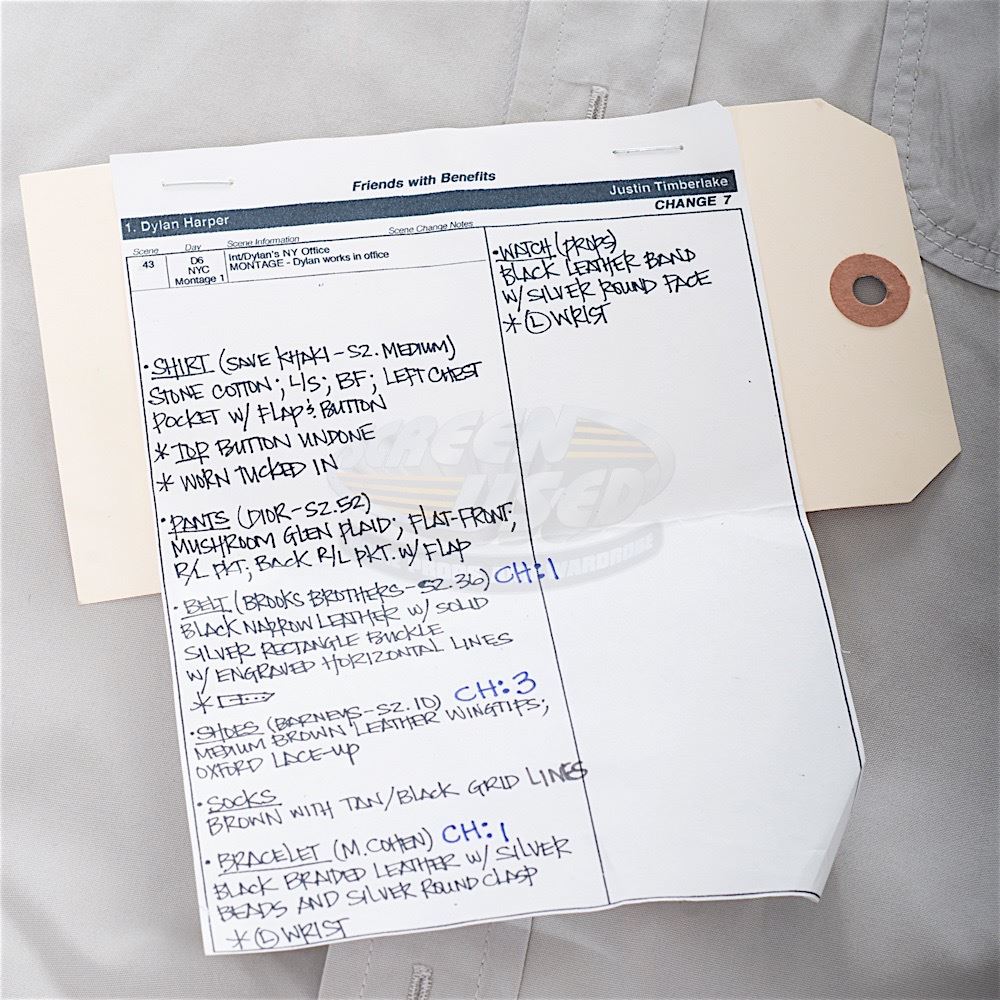 Friends with Benefits
1. Dylan Harper
Justin Timberlake
CHANGE 7
Scene
Day
Scene Information
Scene Change Notes
43
D6
NYC
Montage 1
Int/Dylan's NY Office
MONTAGE - Dylan works in office
• SHIRT (SAVE KHAKI - SZ. MEDIUM)
STONE COTTON; L/S; BF; LEFT CHEST
POCKET W/ FLAP & BUTTON
* TOP BUTTON UNDONE
* WORN TUCKED IN
• PANTS (DIOR - SZ. 52)
MUSHROOM GLEN PLAID; FLAT-FRONT;
R/L PKT; BACK R/L PKT. W/ FLAP
• BELT (BROOKS BROTHERS - SZ. 36) CH:1
BLACK NARROW LEATHER W/ SOLID
SILVER RECTANGLE BUCKLE
W/ ENGRAVED HORIZONTAL LINES
*
• SHOES (BARNEYS - SZ. 10) CH:3
MEDIUM BROWN LEATHER WINGTIPS;
OXFORD LACE-UP
• SOCKS
BROWN WITH TAN/BLACK GRID LINES
• BRACELET (M. COHEN) CH:1
BLACK BRAIDED LEATHER W/ SILVER
BEADS AND SILVER ROUND CLASP
* (L) WRIST
• WATCH (PROPS)
BLACK LEATHER BAND
W/ SILVER ROUND FACE
* (L) WRIST
SCREEN
USED
WARDROBE